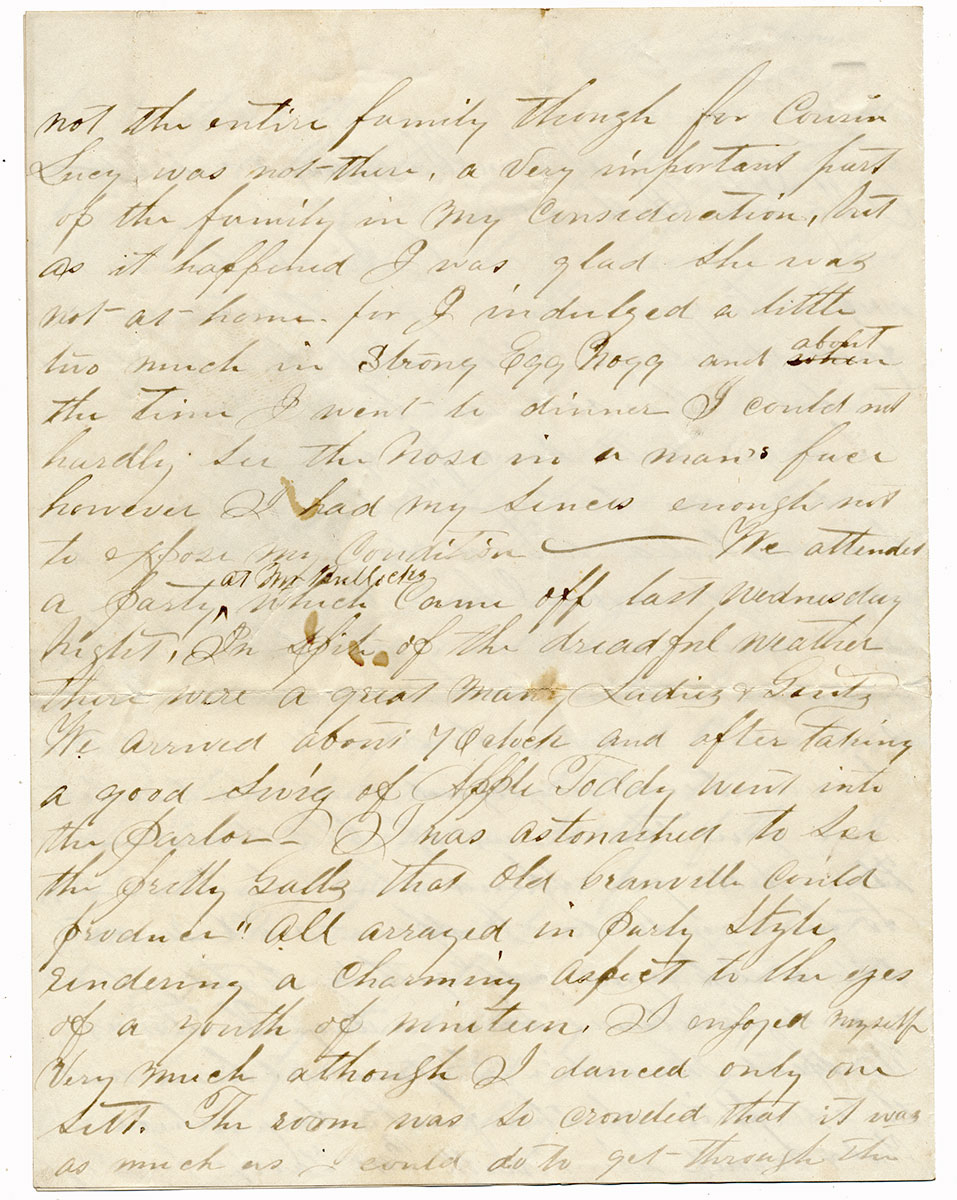 not the entire family though for Cousin
Lucy was not there, a very important part
of the family in my Consideration, but
as it happened I was glad she was
not at home. for I indulged a little
two much in Strong Egg Nogg and about when
the time I went to dinner I could not
hardly see the Nose in a man's face
however I had my sences enough not
to expose my Condition — We attended
at Mr Bullocks
a party, which Came off last Wednesday
Night, In spite of the dreadful weather
there were a great many Ladies & Gents
We arrived about 7 Oclock and after taking
a good swig of Apple Toddy went into
the parlor - I was astonished to see
the pretty Galls that Old Granville Could
produce" All arrayed in party Style
rendering a Charming aspect to the eyes
of a youth of nineteen. I enjoyed myself
Very much although I danced only one
sett. The room was so crowded that it was
as much as I could do to get through the